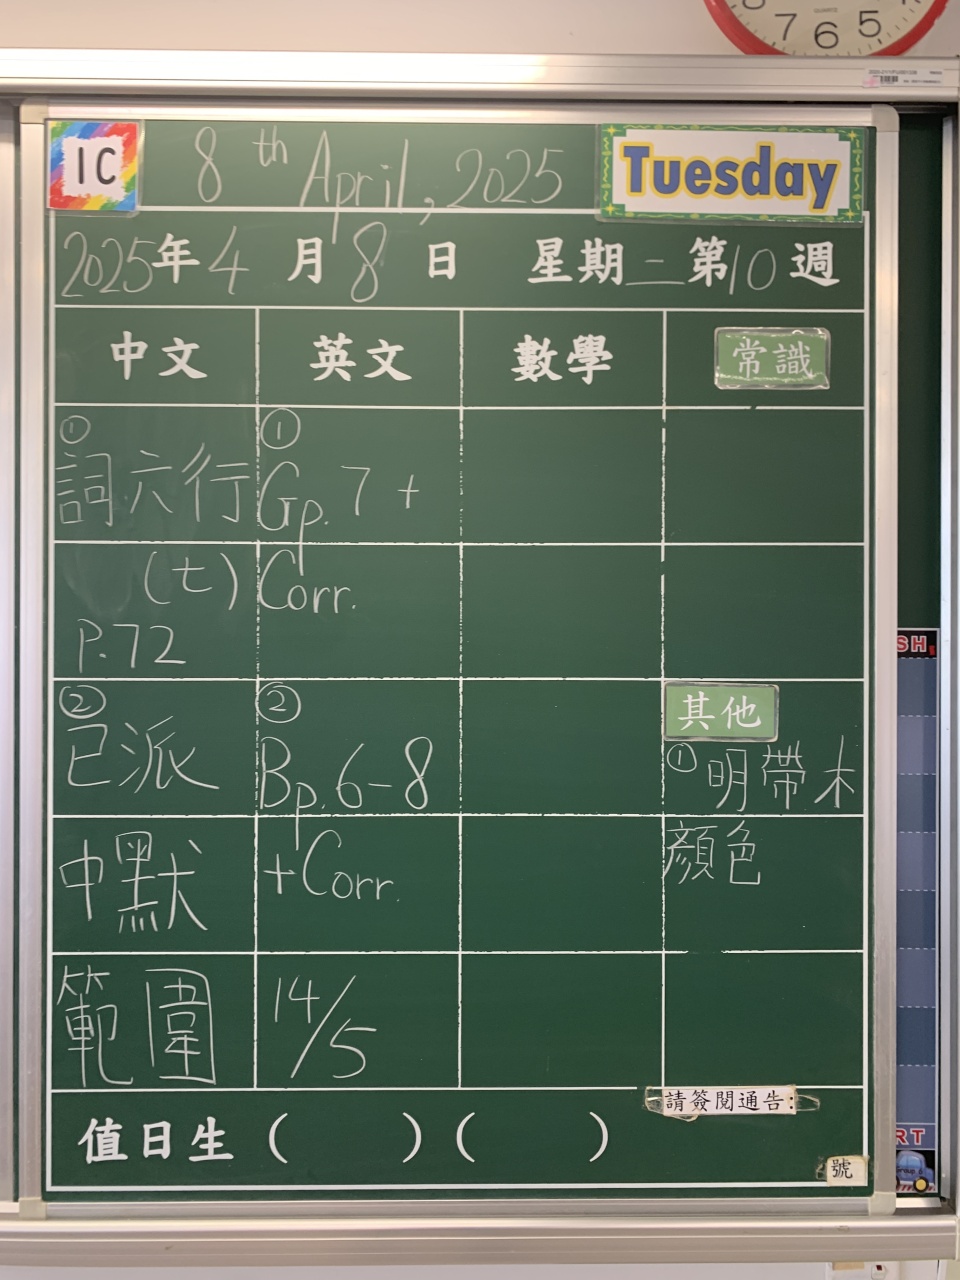 7 6 5
1C 8th April, 2025 Tuesday
2025年4月8日 星期二第10週
中文 英文 數學 常識
①
詞六行
(七)
P.72
②
已派
中默
範圍
①
Gp. 7 +
Corr.
②
Bp. 6-8
+Corr.
14/5
其他
①明帶木
顏色
請簽閱通告:
值日生 ( ) ( )
號
SH
RT